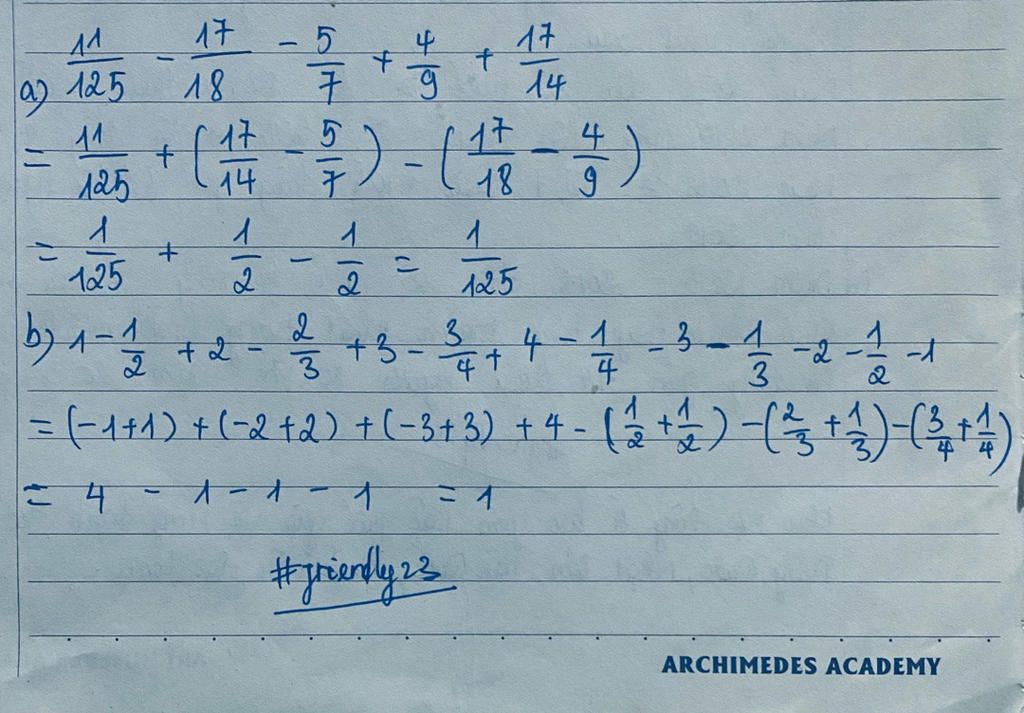 a) 11/125 - 17/18 - 5/7 + 4/9 + 17/14
= 11/125 + (17/14 - 5/7) - (17/18 - 4/9)
= 1/125 + 1/2 - 1/2 = 1/125
b) 1 - 1/2 + 2 - 2/3 + 3 - 3/4 + 4 - 1/4 - 3 - 1/3 - 2 - 1/2 - 1
= (-1+1) + (-2+2) + (-3+3) + 4 - (1/2 + 1/2) - (2/3 + 1/3) - (3/4 + 1/4)
= 4 - 1 - 1 - 1 = 1
#friendly23
ARCHIMEDES ACADEMY